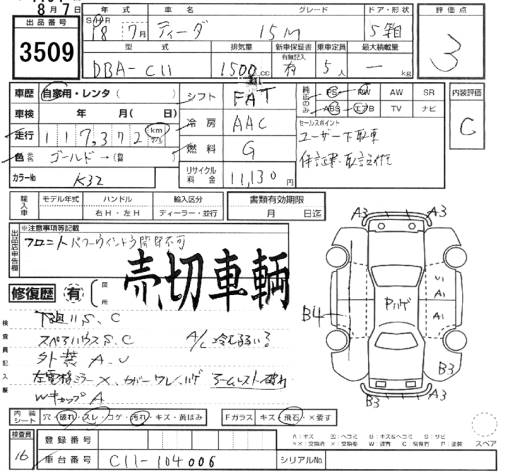 8/7
出品番号
3509
年式 車名 グレード ドア・形状
18年 7月 ティーダ 15M 5 箱
型式 排気量 新車保証書 有無記入 乗車定員 最大積載量
DBA-C11 1500cc 有 5人 — kg
評価点
3
車歴 自家用・レンタ ( )
車検 年 月(日)
走行 117,372 km
色 ゴールド→(替 )
カラーNo. K32
シフト FAT
冷房 AAC
燃料 G
リサイクル料金 11,130円
純正のみ PS PW AW SR
ABS エアB TV ナビ
セールスポイント
ユーザー下取車
内装評価
C
輸入車 モデル年式 ハンドル 輸入区分
年 右H・左H ディーラー・並行
書類有効期限
月 日迄
出品店申告欄
※注意事項等記載
フロントパワーウインドウ開閉不可
売切車輌
修復歴 有
箇所
検査員記入欄
下廻りS、C
スペアハウスS、C
外装 A、U
WキャップA
A3
A3
U1
A1
B4
Pハゲ
B3
B3
A3
内装シート 穴・破れ・スレ・コゲ・汚れ・キズ・黄ばみ
Fガラス キズ・飛石・×要す
スペア
検査員
16
登録番号
車台番号 C11-104006
シリアルNo.